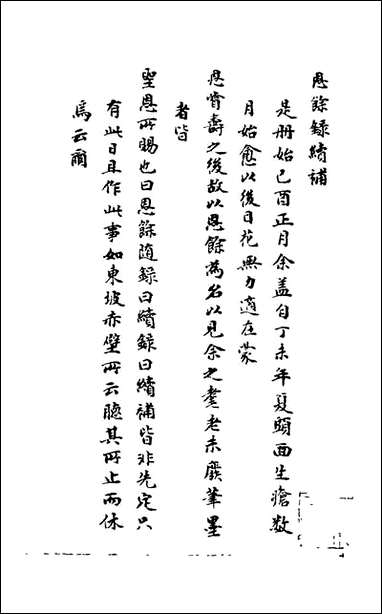 恩餘錄續補
是冊始己酉正月余蓋自丁未年夏頭面生瘡數
月始愈以後目花無力適在蒙
恩賞壽之後故以恩餘為名以見余之耄老未廢筆墨
者皆
聖恩所賜也曰恩餘随録曰續録曰續補皆非先定只
有此日且作此事如東坡赤壁所云聽其所止而休
焉云爾